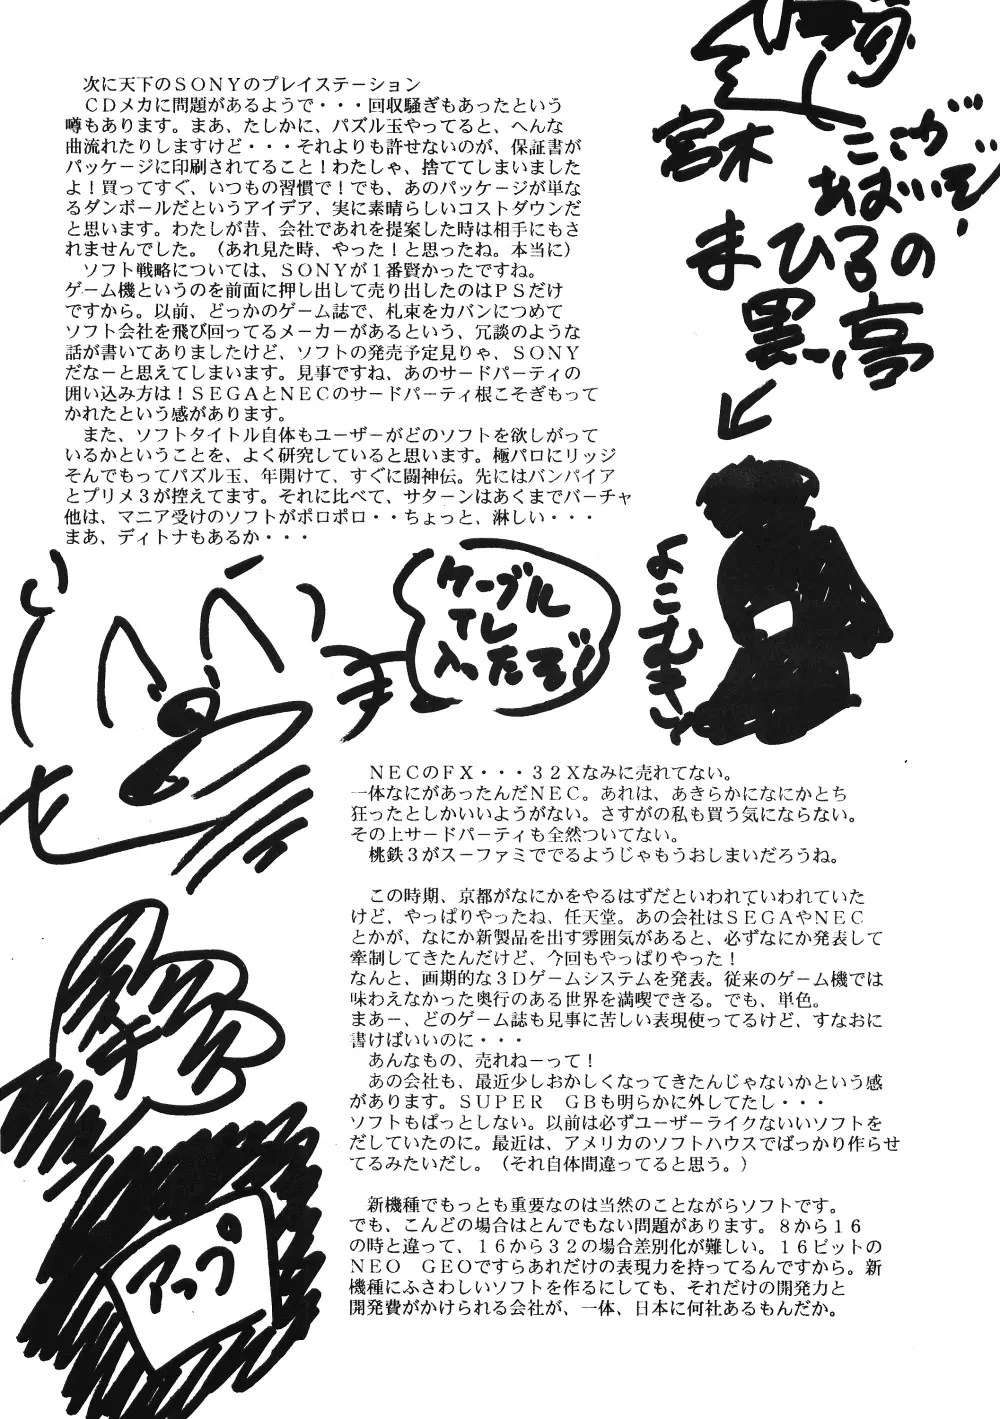 次に天下のＳＯＮＹのプレイステーション
ＣＤメカに問題があるようで・・・回収騒ぎもあったという
噂もあります。まあ、たしかに、パズル玉やってると、へんな
曲流れたりしますけど・・・それよりも許せないのが、保証書が
パッケージに印刷されてること！わたしゃ、捨ててしまいました
よ！買ってすぐ、いつもの習慣で！でも、あのパッケージが単な
るダンボールだというアイデア、実に素晴らしいコストダウンだ
と思います。わたしが昔、会社であれを提案した時は相手にもさ
れませんでした。（あれ見た時、やった！と思ったね。本当に）
ソフト戦略については、ＳＯＮＹが１番賢かったですね。
ゲーム機というのを前面に押し出して売り出したのはＰＳだけ
ですから。以前、どっかのゲーム誌で、札束をカバンにつめて
ソフト会社を飛び回ってるメーカーがあるという、冗談のような
話が書いてありましたけど、ソフトの発売予定見りゃ、ＳＯＮＹ
だなーと思えてしまいます。見事ですね、あのサードパーティの
囲い込み方は！ＳＥＧＡとＮＥＣのサードパーティ根こそぎもって
かれたという感があります。
また、ソフトタイトル自体もユーザーがどのソフトを欲しがって
いるかということを、よく研究していると思います。極パロにリッジ
そんでもってパズル玉、年開けて、すぐに闘神伝。先にはバンパイア
とプリメ３が控えてます。それに比べて、サターンはあくまでバーチャ
他は、マニア受けのソフトがポロポロ・・ちょっと、淋しい・・・
まあ、ディトナもあるか・・・
宮木
ここが
あまいぞ！
まひるの
黒亭
よこむき
ケーブル
ＴＶ
入ったぞ！
ＮＥＣのＦＸ・・・３２Ｘなみに売れてない。
一体なにがあったんだＮＥＣ。あれは、あきらかになにかとち
狂ったとしかいいようがない。さすがの私も買う気にならない。
その上サードパーティも全然ついてない。
桃鉄３がスーファミででるようじゃもうおしまいだろうね。
この時期、京都がなにかをやるはずだといわれていわれていた
けど、やっぱりやったね、任天堂。あの会社はＳＥＧＡやＮＥＣ
とかが、なにか新製品を出す雰囲気があると、必ずなにか発表して
牽制してきたんだけど、今回もやっぱりやった！
なんと、画期的な３Ｄゲームシステムを発表。従来のゲーム機では
味わえなかった奥行のある世界を満喫できる。でも、単色。
まあー、どのゲーム誌も見事に苦しい表現使ってるけど、すなおに
書けばいいのに・・・
あんなもの、売れねーって！
あの会社も、最近少しおかしくなってきたんじゃないかという感
があります。ＳＵＰＥＲ　ＧＢも明らかに外してたし・・・
ソフトもぱっとしない。以前は必ずユーザーライクないいソフトを
だしていたのに。最近は、アメリカのソフトハウスでばっかり作らせ
てるみたいだし。（それ自体間違ってると思う。）
新機種でもっとも重要なのは当然のことながらソフトです。
でも、こんどの場合はとんでもない問題があります。８から１６
の時と違って、１６から３２の場合差別化が難しい。１６ビットの
ＮＥＯ　ＧＥＯですらあれだけの表現力を持ってるんですから。新
機種にふさわしいソフトを作るにしても、それだけの開発力と
開発費がかけられる会社が、一体、日本に何社あるもんだか。
アップ